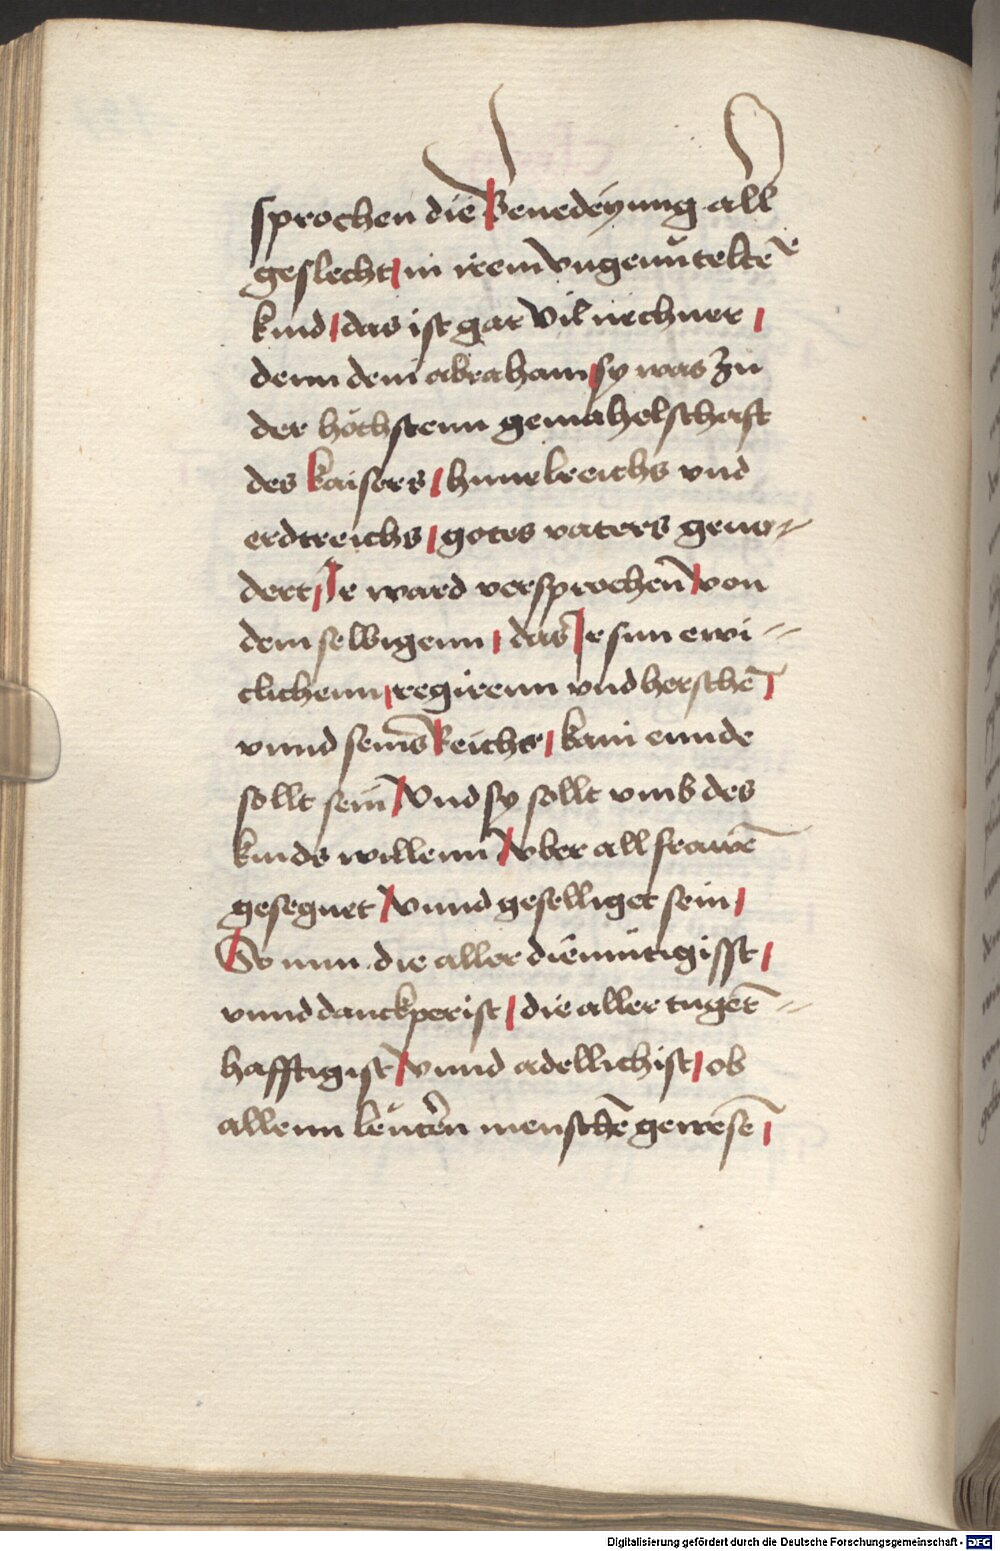 sprochen die Benedeyung all
geslecht in irem vngemůteltē
kind das ist gar vil nechner
denn dem abraham sy was zu
der höchstenn gemahelschafft
des kaisers himelreichs vnd
erdtreichs gotes vaters
dert Ir ward versprochen von
dem selbigenn das Ir sun ewi=
clichenn regirenn vnd herschē
vnnd seins Reichs kain ennde
sollt sein Vnd sy sollt vmb des
kinds willenn vber all frawē
gesegnet vnnd geselliget sein
So nun die aller diemütigisst
vnnd danckperist die aller tugēt=
hafftigist vnnd adellichist ob
allenn menschē gewesē
Digitalisierung gefördert durch die Deutsche Forschungsgemeinschaft - DFG